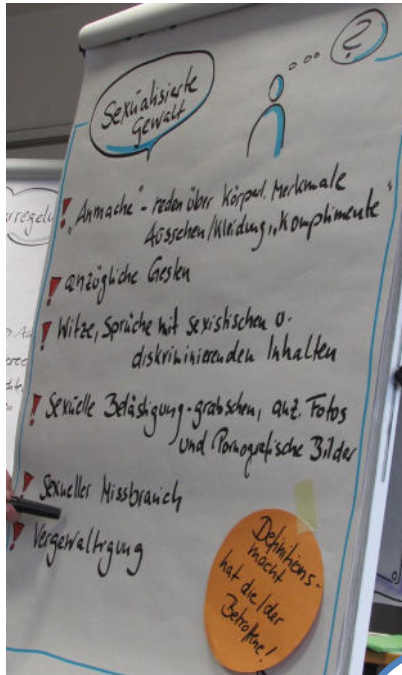 Sexualisierte
Gewalt
?
! „Anmache“ - reden über körperl. Merkmale
Aussehen/Kleidung „Komplimente“
! anzügliche Gesten
! Witze, Sprüche mit sexistischen o.
diskriminierenden Inhalten
! Sexuelle Belästigung - grabschen, anz. Fotos
und Pornografische Bilder
! Sexueller Missbrauch
! Vergewaltigung
Definitions-
macht
hat die/der
Betroffene!